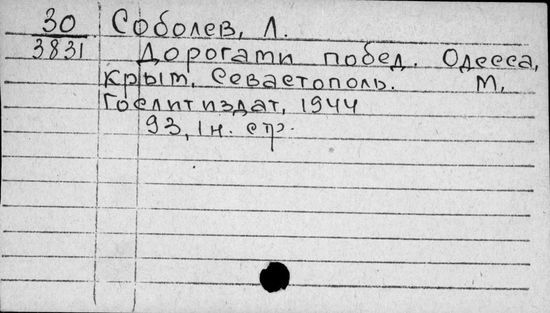 30 Соболев, Л.
3831 Дорогами побед. Одесса,
Крым, Севастополь. М.
Гослитиздат, 1944
93, 1 н. стр.